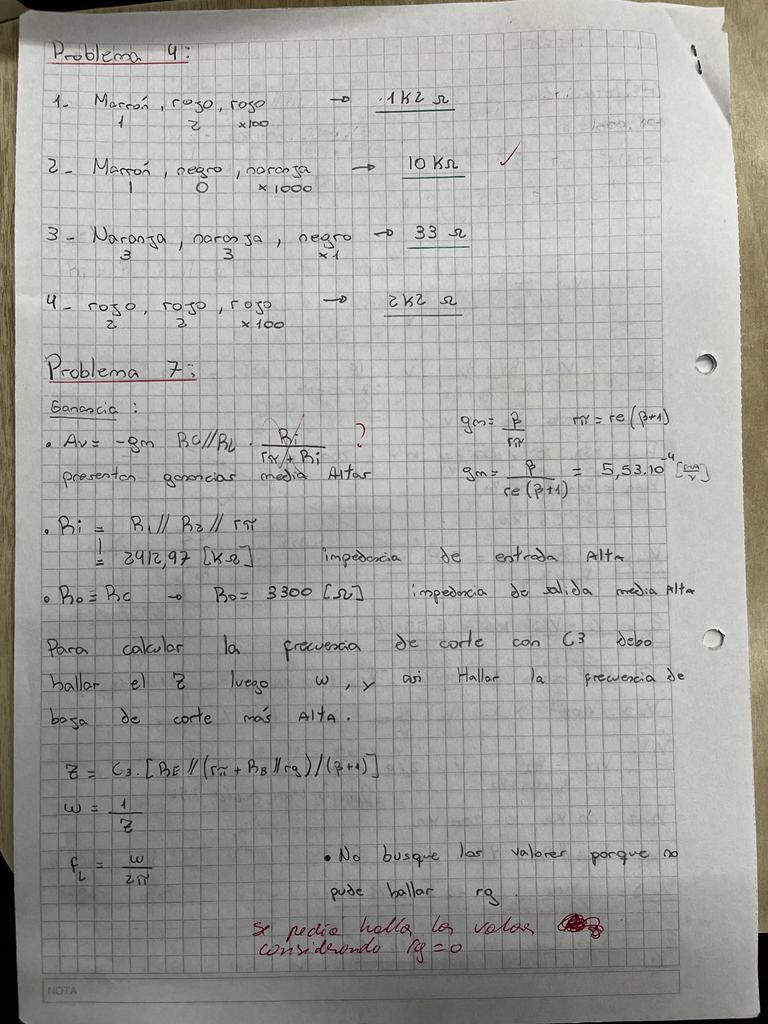 Problema 4:
1- Marrón, rojo, rojo → 1K2 Ω
1 2 x100
2- Marrón, negro, naranja → 10 KΩ ✓
1 0 x 1000
3- Naranja, naranja, negro → 33 Ω
3 3 x1
4- rojo, rojo, rojo → 2K2 Ω
2 2 x 100
Problema 7:
Ganancia:
• Av = -gm RC//RL . Ri / (rπ + Ri) ?
presenton ganancias media Altas
gm = β / rπ rπ = re (β+1)
gm = β / re (β+1) = 5,53.10⁻⁴ [mA/V]
• Ri = R1 // R2 // rπ
= 2412,97 [KΩ] impedancia de entrada Alta
• Ro = RC → Ro = 3300 [Ω] impedancia de salida media Alta
Para calcular la frecuencia de corte con C3 debo
hallar el Z luego ω, y asi Hallar la frecuencia de
baja de corte más Alta.
Z = C3. [RE // (rπ + RB // rg) / (β+1)]
ω = 1 / Z
fL = ω / 2π
• No busque los valores porque no
pude hallar rg.
se pedia halla los valores
considerando rg = 0
NOTA